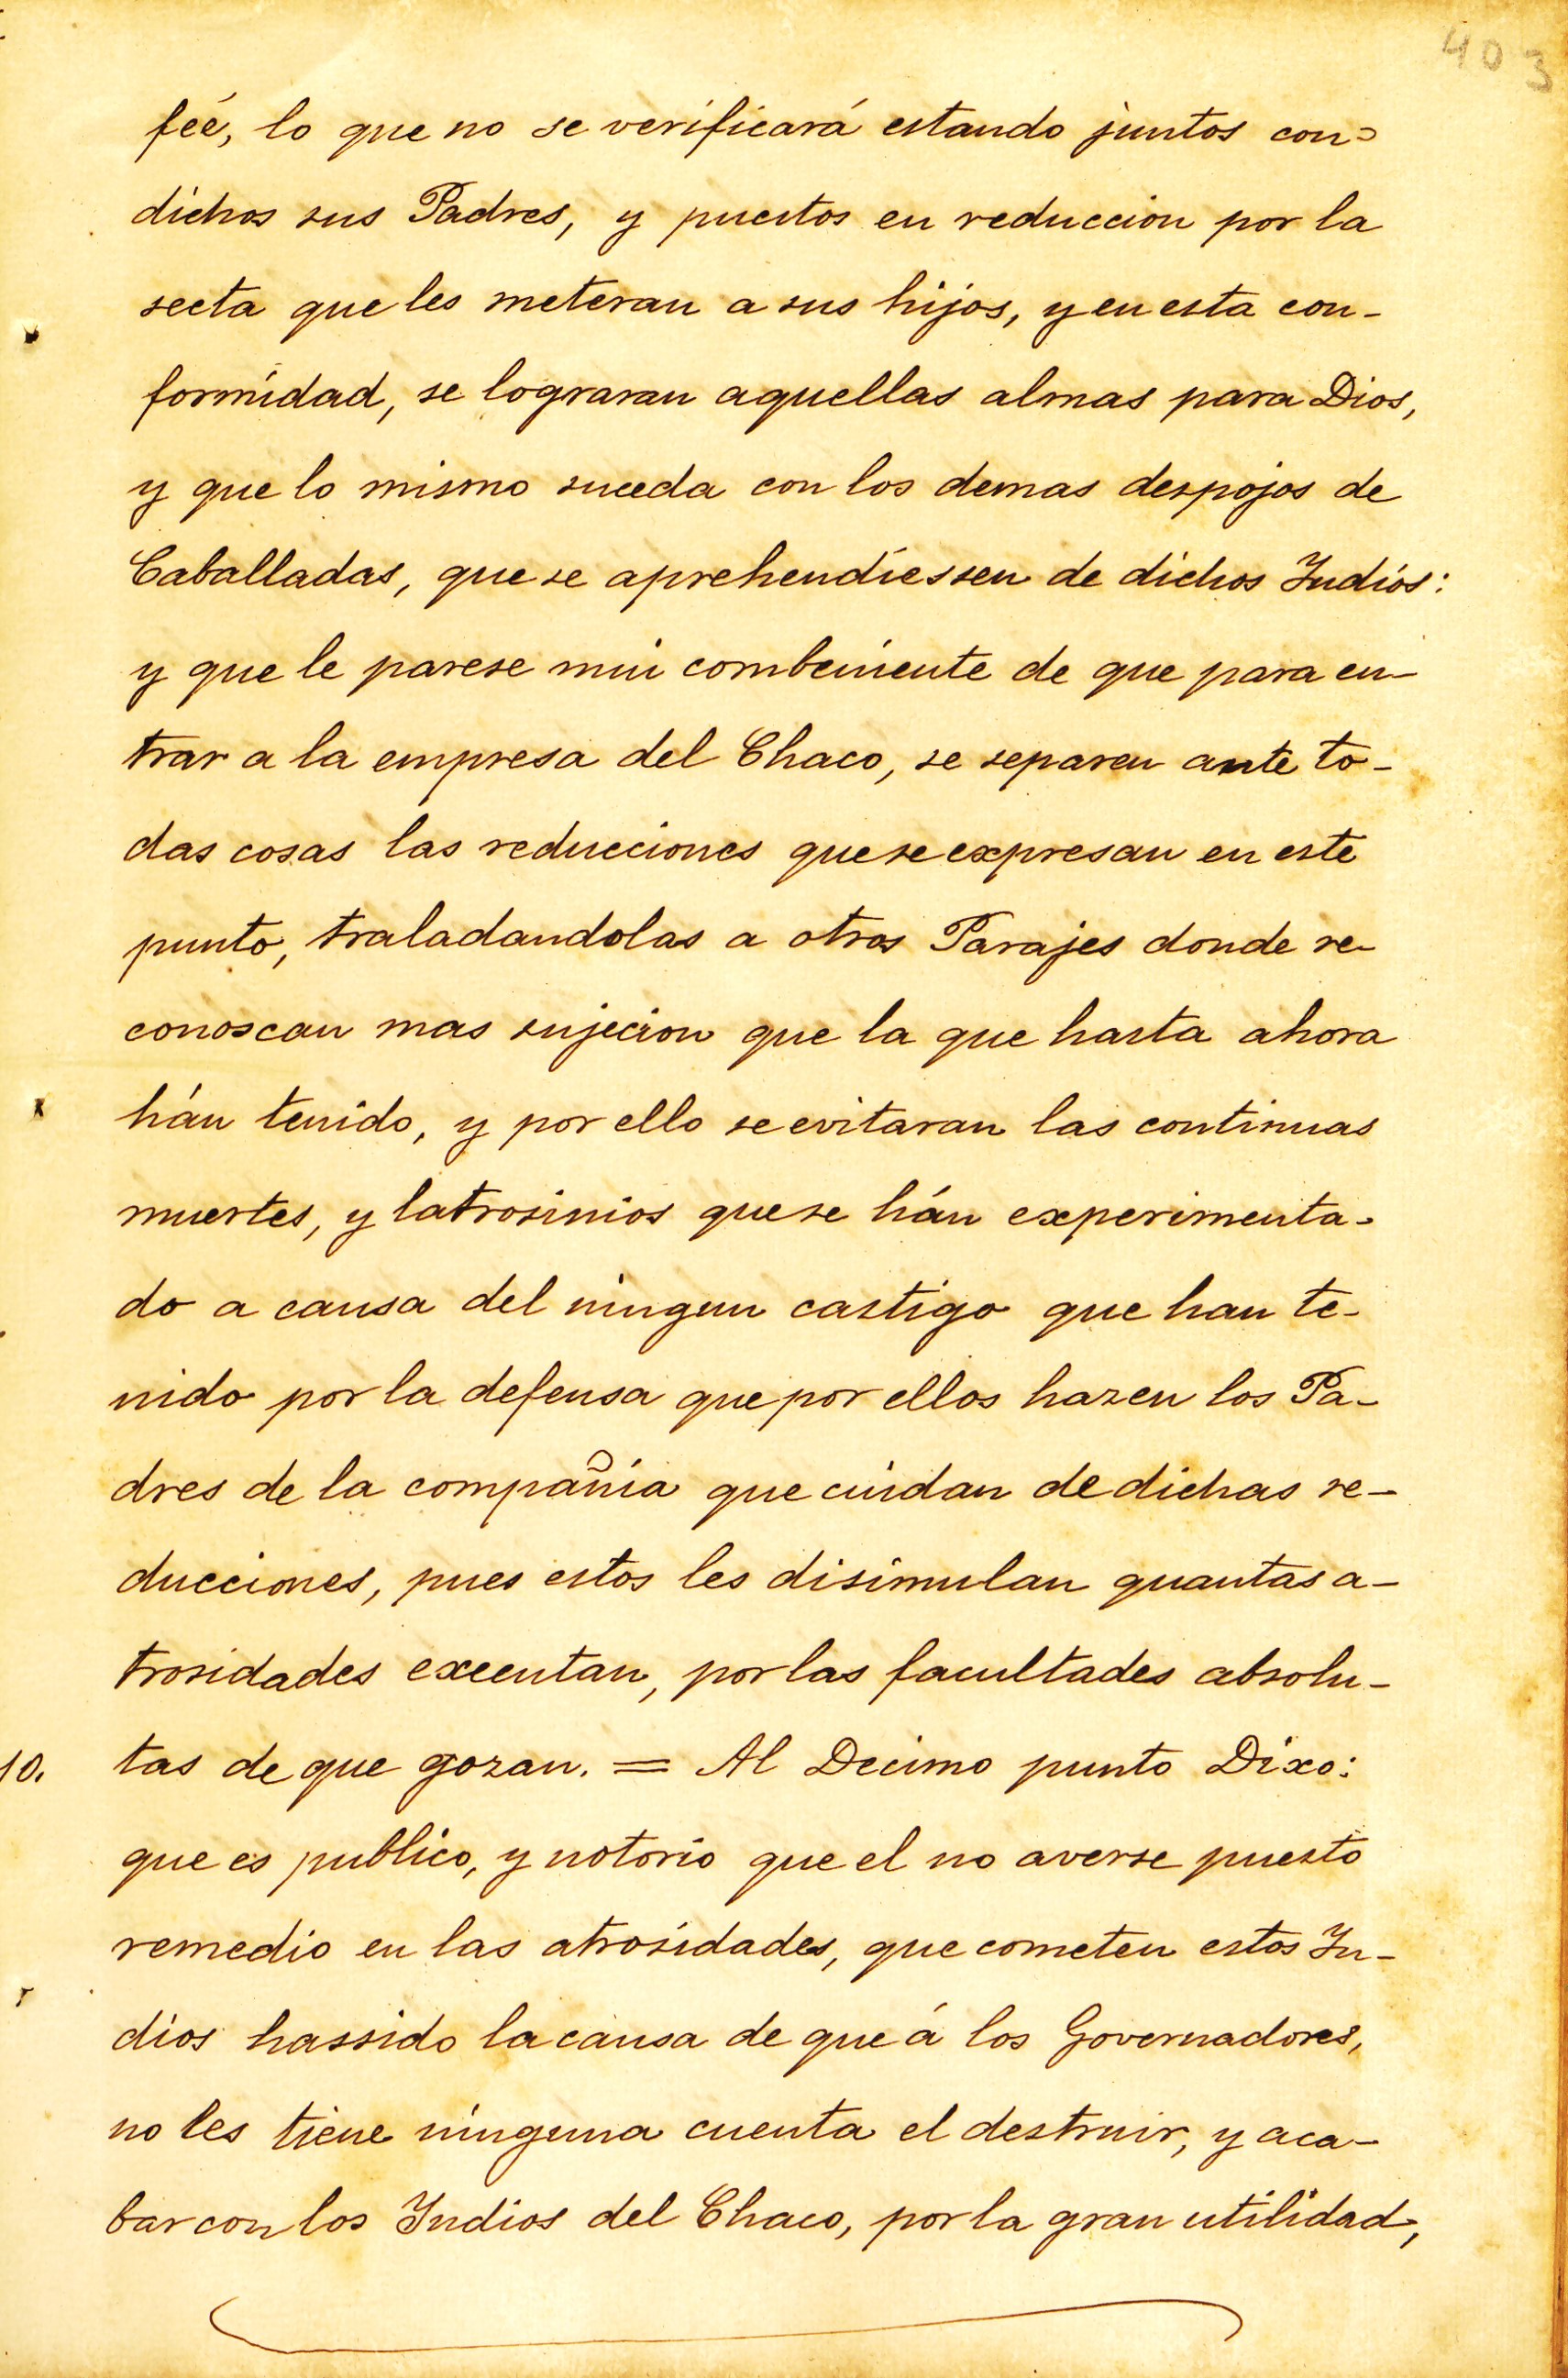 403
feé, lo que no se verificará estando juntos con=
dichos sus Padres, y puestos en reduccion por la
secta que les meteran a sus hijos, y en esta con-
formidad, se lograran aquellas almas para Dios,
y que lo mismo suceda con los demas despojos de
Caballadas, que se aprehendiessen de dichos Indios:
y que le parese mui combeniente de que para en-
trar a la empresa del Chaco, se separen ante to-
das cosas las reducciones que se expresan en este
punto, traladandolas a otros Parajes donde re-
conoscan mas sujecion que la que hasta ahora
hán tenido, y por ello se evitaran las continuas
muertes, y latrosinios que se hán experimenta-
do a causa del ningun castigo que han te-
nido por la defensa que por ellos hazen los Pa-
dres de la compañia que cuidan de dichas re-
ducciones, pues estos les disimulan quantas a-
trosidades executan, por las facultades absolu-
10. tas de que gozan. = Al Decimo punto Dixo:
que es publico, y notorio que el no averse puesto
remedio en las atrosidades, que cometen estos In-
dios hassido la causa de que á los Governadores,
no les tiene ninguna cuenta el destruir, y aca-
bar con los Indios del Chaco, por la gran utilidad,